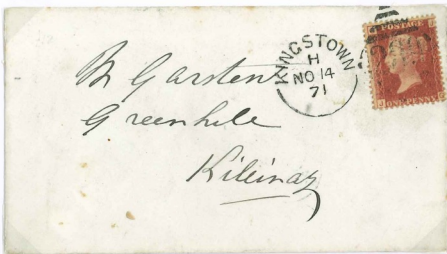 KINGSTOWN
H
NO 14
71
POSTAGE
Garsten
Greenhile
Killinay